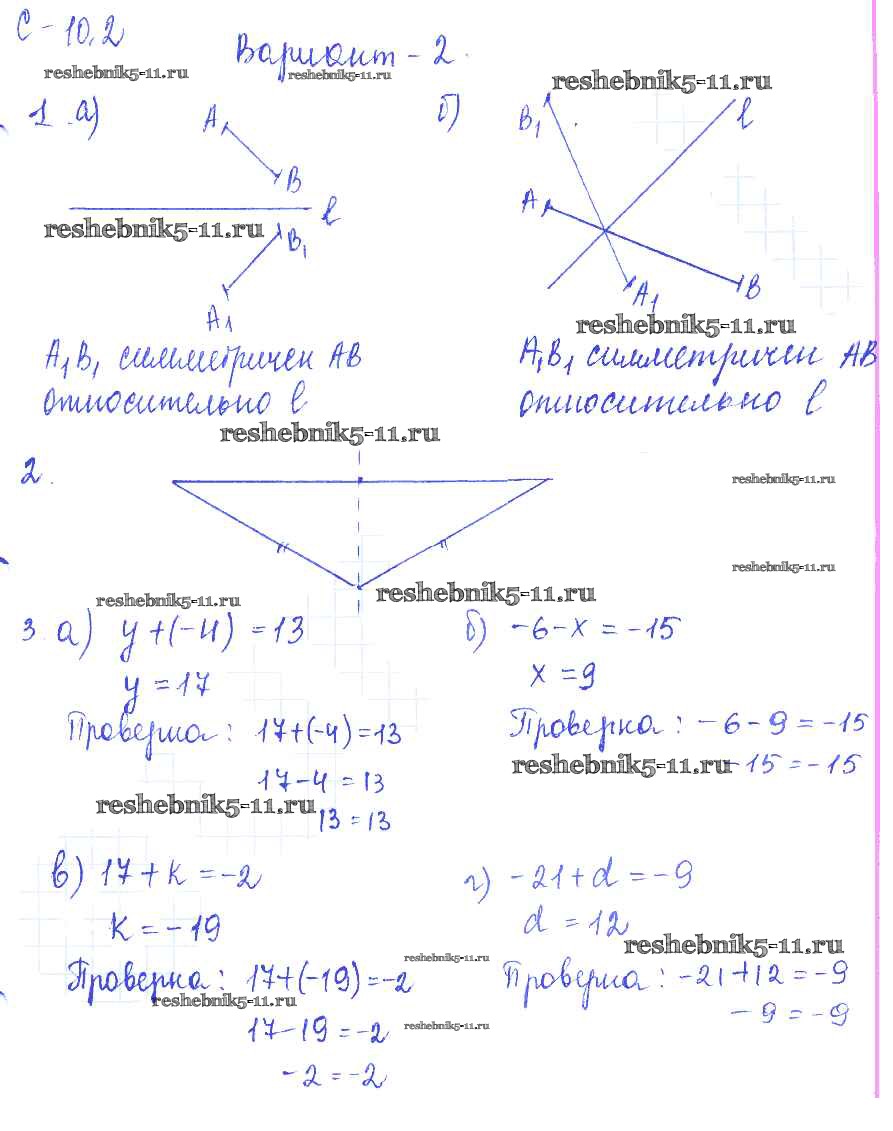 С-10.2
Вариант-2.
reshebnik5-11.ru
reshebnik5-11.ru
reshebnik5-11.ru
1. а)
A
B
l
reshebnik5-11.ru
B₁
A₁
A₁B₁ симметричен AB
относительно l
б)
B₁
l
A
A₁
B
reshebnik5-11.ru
A₁B₁ симметричен AB
относительно l
reshebnik5-11.ru
2.
reshebnik5-11.ru
reshebnik5-11.ru
reshebnik5-11.ru
reshebnik5-11.ru
3. а) y+(-4)=13
y=17
Проверка: 17+(-4)=13
17-4=13
reshebnik5-11.ru
13=13
б) -6-x=-15
x=9
Проверка: -6-9=-15
reshebnik5-11.ru
-15=-15
в) 17+k=-2
k=-19
reshebnik5-11.ru
Проверка: 17+(-19)=-2
reshebnik5-11.ru
17-19=-2
reshebnik5-11.ru
-2=-2
г) -21+d=-9
d=12
reshebnik5-11.ru
Проверка: -21+12=-9
-9=-9